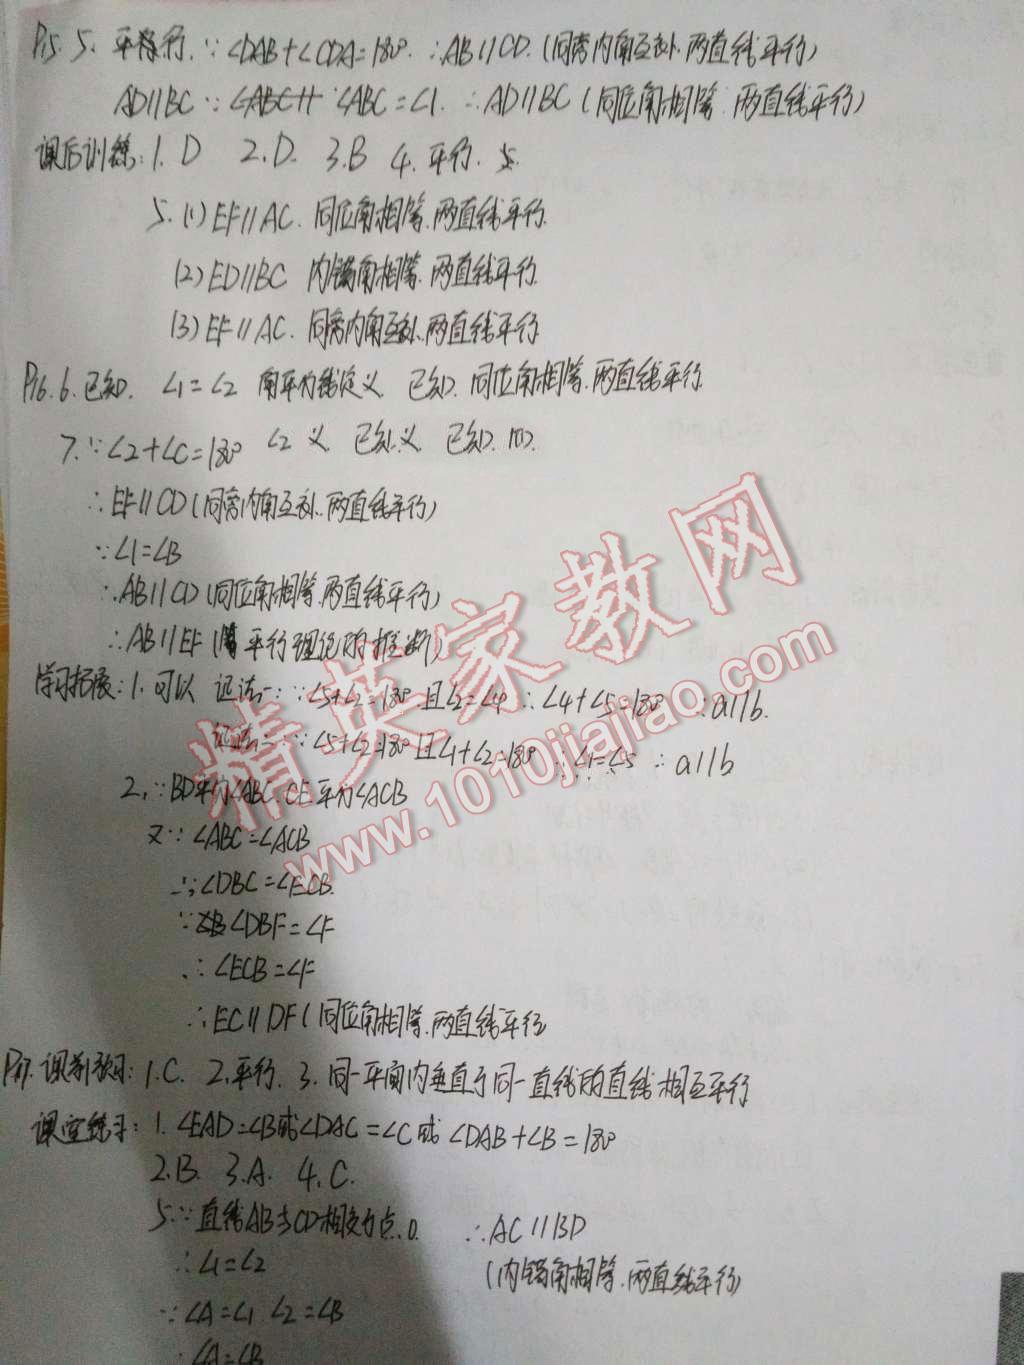 P15. 5. 平行. ∵∠DAB+∠CDA=180° ∴AB//CD.(同旁内角互补.两直线平行)
AD//BC ∵ ∠ABC=∠1. ∴AD//BC (同位角相等.两直线平行)
课后训练: 1. D 2. D. 3. B 4. 平行.
5. (1) EF//AC. 同位角相等.两直线平行.
(2) ED//BC 内错角相等.两直线平行.
(3) EF//AC. 同旁内角互补.两直线平行
P16. 6. 已知. ∠1=∠2 角平分线定义 已知. 同位角相等.两直线平行.
7. ∵∠2+∠C=180° ∠2 义 已知.义 已知.
∴EF//CD (同旁内角互补.两直线平行)
∵∠1=∠B
∴AB//CD (同位角相等.两直线平行)
∴AB//EF (平行理论的推断)
学习拓展: 1. 可以 证法一: ∵∠5+∠2=180° 且∠2=∠4 ∴∠4+∠5=180° ∴a//b.
证法二: ∵∠5+∠2=180° 且∠1+∠2=180° ∴∠1=∠5 ∴a//b
2. ∵BD平分∠ABC. CE平分∠ACB
又∵∠ABC=∠ACB
∴∠DBC=∠ECB.
∵∠DBF=∠F
∴∠ECB=∠F
∴EC//DF (同位角相等.两直线平行
P17. 课前预习: 1. C. 2. 平行. 3. 同一平面内垂直于同一直线的直线相互平行
课堂练习: 1. ∠EAD=∠B或∠DAC=∠C或∠DAB+∠B=180°
2. B. 3. A. 4. C.
5. ∵直线AB与CD相交于点.O ∴AC//BD
∴∠1=∠2 (内错角相等.两直线平行)
∵∠A=∠1 ∠2=∠B
∴∠A=∠B
精英家教网
www.1010jiajiao.com